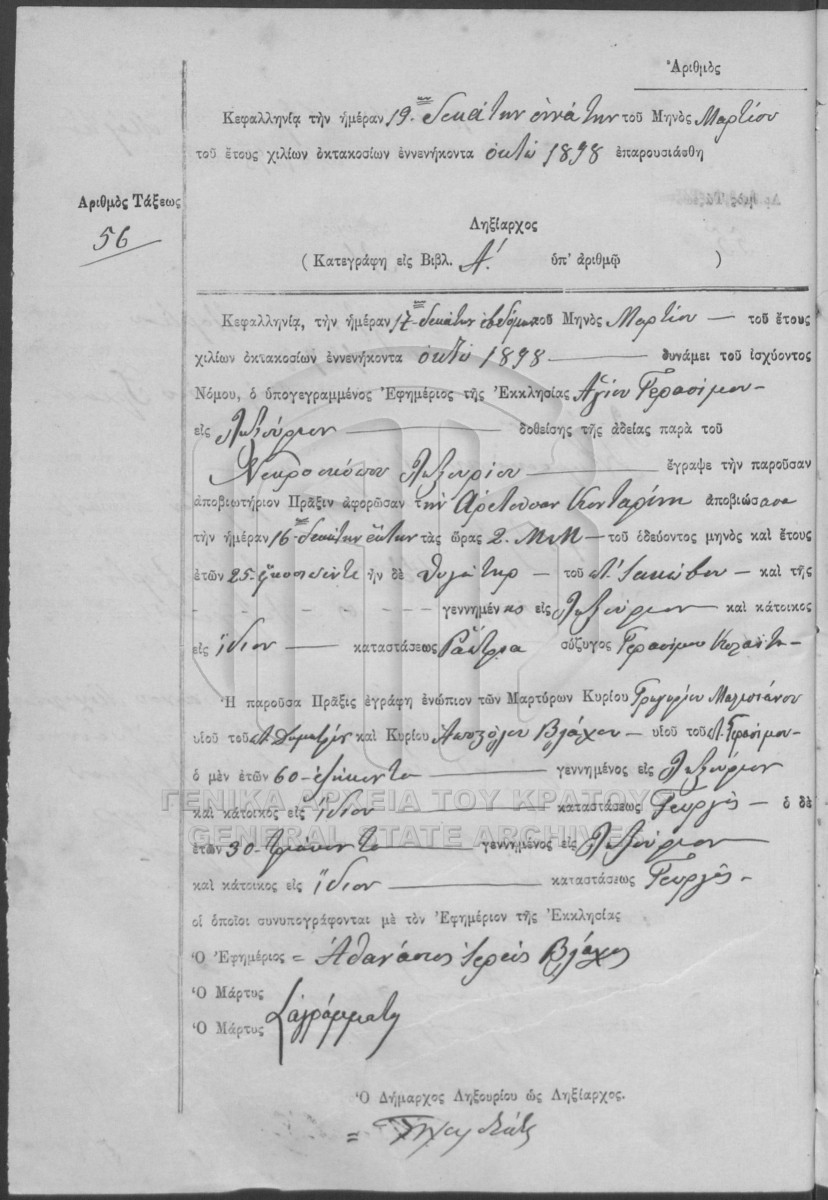 Ἀριθμὸς
Κεφαλληνίᾳ τὴν ἡμέραν 19ην δεκάτην ἐννάτην τοῦ Μηνὸς Μαρτίου
τοῦ ἔτους χιλίων ὀκτακοσίων ἐννενήκοντα ὀκτὼ 1898 ἐπαρουσιάσθη
Ἀριθμὸς Τάξεως
56
Ληξίαρχος
( Κατεγράφη εἰς Βιβλ. Α! ὑπ' ἀριθμῷ )
Κεφαλληνίᾳ, τὴν ἡμέραν 17 δεκάτην ἑβδόμην τοῦ Μηνὸς Μαρτίου — τοῦ ἔτους
χιλίων ὀκτακοσίων ἐννενήκοντα ὀκτὼ 1898 — δυνάμει τοῦ ἰσχύοντος
Νόμου, ὁ ὑπογεγραμμένος Ἐφημέριος τῆς Ἐκκλησίας Ἁγίου Γερασίμου -
εἰς Ληξούριον — δοθείσης τῆς ἀδείας παρὰ τοῦ
Νεκροσκόπου Ληξουρίου — ἔγραψε τὴν παροῦσαν
ἀποβιωτήριον Πρᾶξιν ἀφορῶσαν τὴν Ἀρετοῦσαν Κονταρίνη ἀποβιώσασα
τὴν ἡμέραν 16 δεκάτην ἕκτην τὰς ὥρας 2. Μ.Μ — τοῦ ὁδεύοντος μηνὸς καὶ ἔτους
ἐτῶν 25 εἴκοσι πέντε ἦν δὲ θυγάτηρ — τοῦ Ἰακώβου — καὶ τῆς
- - - - - - γεννημένος εἰς Ληξούριον — καὶ κάτοικος
εἰς ἴδιον — καταστάσεως Ράπτρια σύζυγος Γερασίμου
Ἡ παροῦσα Πρᾶξις ἐγράφη ἐνώπιον τῶν Μαρτύρων Κυρίου Γρηγορίου
υἱοῦ τοῦ Δημητρίου καὶ Κυρίου Ἀποστόλου Βλάχου — υἱοῦ τοῦ Γερασίμου -
ὁ μὲν ἐτῶν 60 - ἑξήκοντα — γεννημένος εἰς Ληξούριον
καὶ κάτοικος εἰς ἴδιον — καταστάσεως Γεωργὸς — ὁ δὲ
ἐτῶν 30 - τριάκοντα — γεννημένος εἰς Ληξούριον
καὶ κάτοικος εἰς ἴδιον — καταστάσεως Γεωργὸς -
οἱ ὁποῖοι συνυπογράφονται μὲ τὸν Ἐφημέριον τῆς Ἐκκλησίας
Ὁ Ἐφημέριος = Ἀθανάσιος Ἱερεὺς Βλάχος
Ὁ Μάρτυς
Ὁ Μάρτυς Ἀγράμματοι
Ὁ Δήμαρχος Ληξουρίου ὡς Ληξίαρχος.
ΓΕΝΙΚΑ ΑΡΧΕΙΑ ΤΟΥ ΚΡΑΤΟΥΣ
GENERAL STATE ARCHIVES